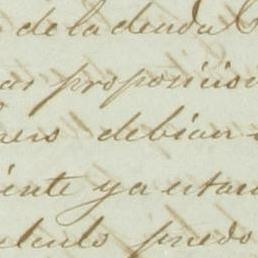 de la deuda
as proposicio
debian
ente ya estaria
lculo puedo